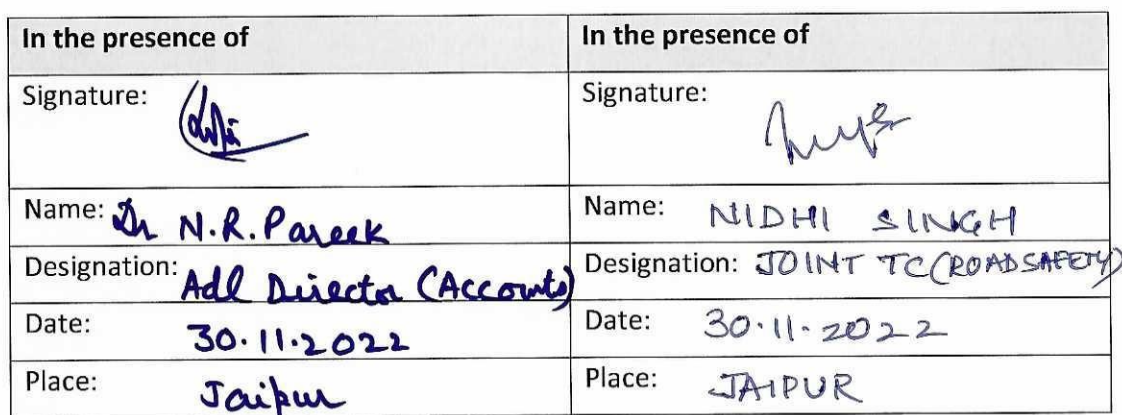 In the presence of
In the presence of
Signature:
Signature:
Name: Dr N.R. Pareek
Name: NIDHI SINGH
Designation: Adl Director (Accounts)
Designation: JOINT TC (ROADSAFETY)
Date: 30.11.2022
Date: 30.11.2022
Place: Jaipur
Place: JAIPUR